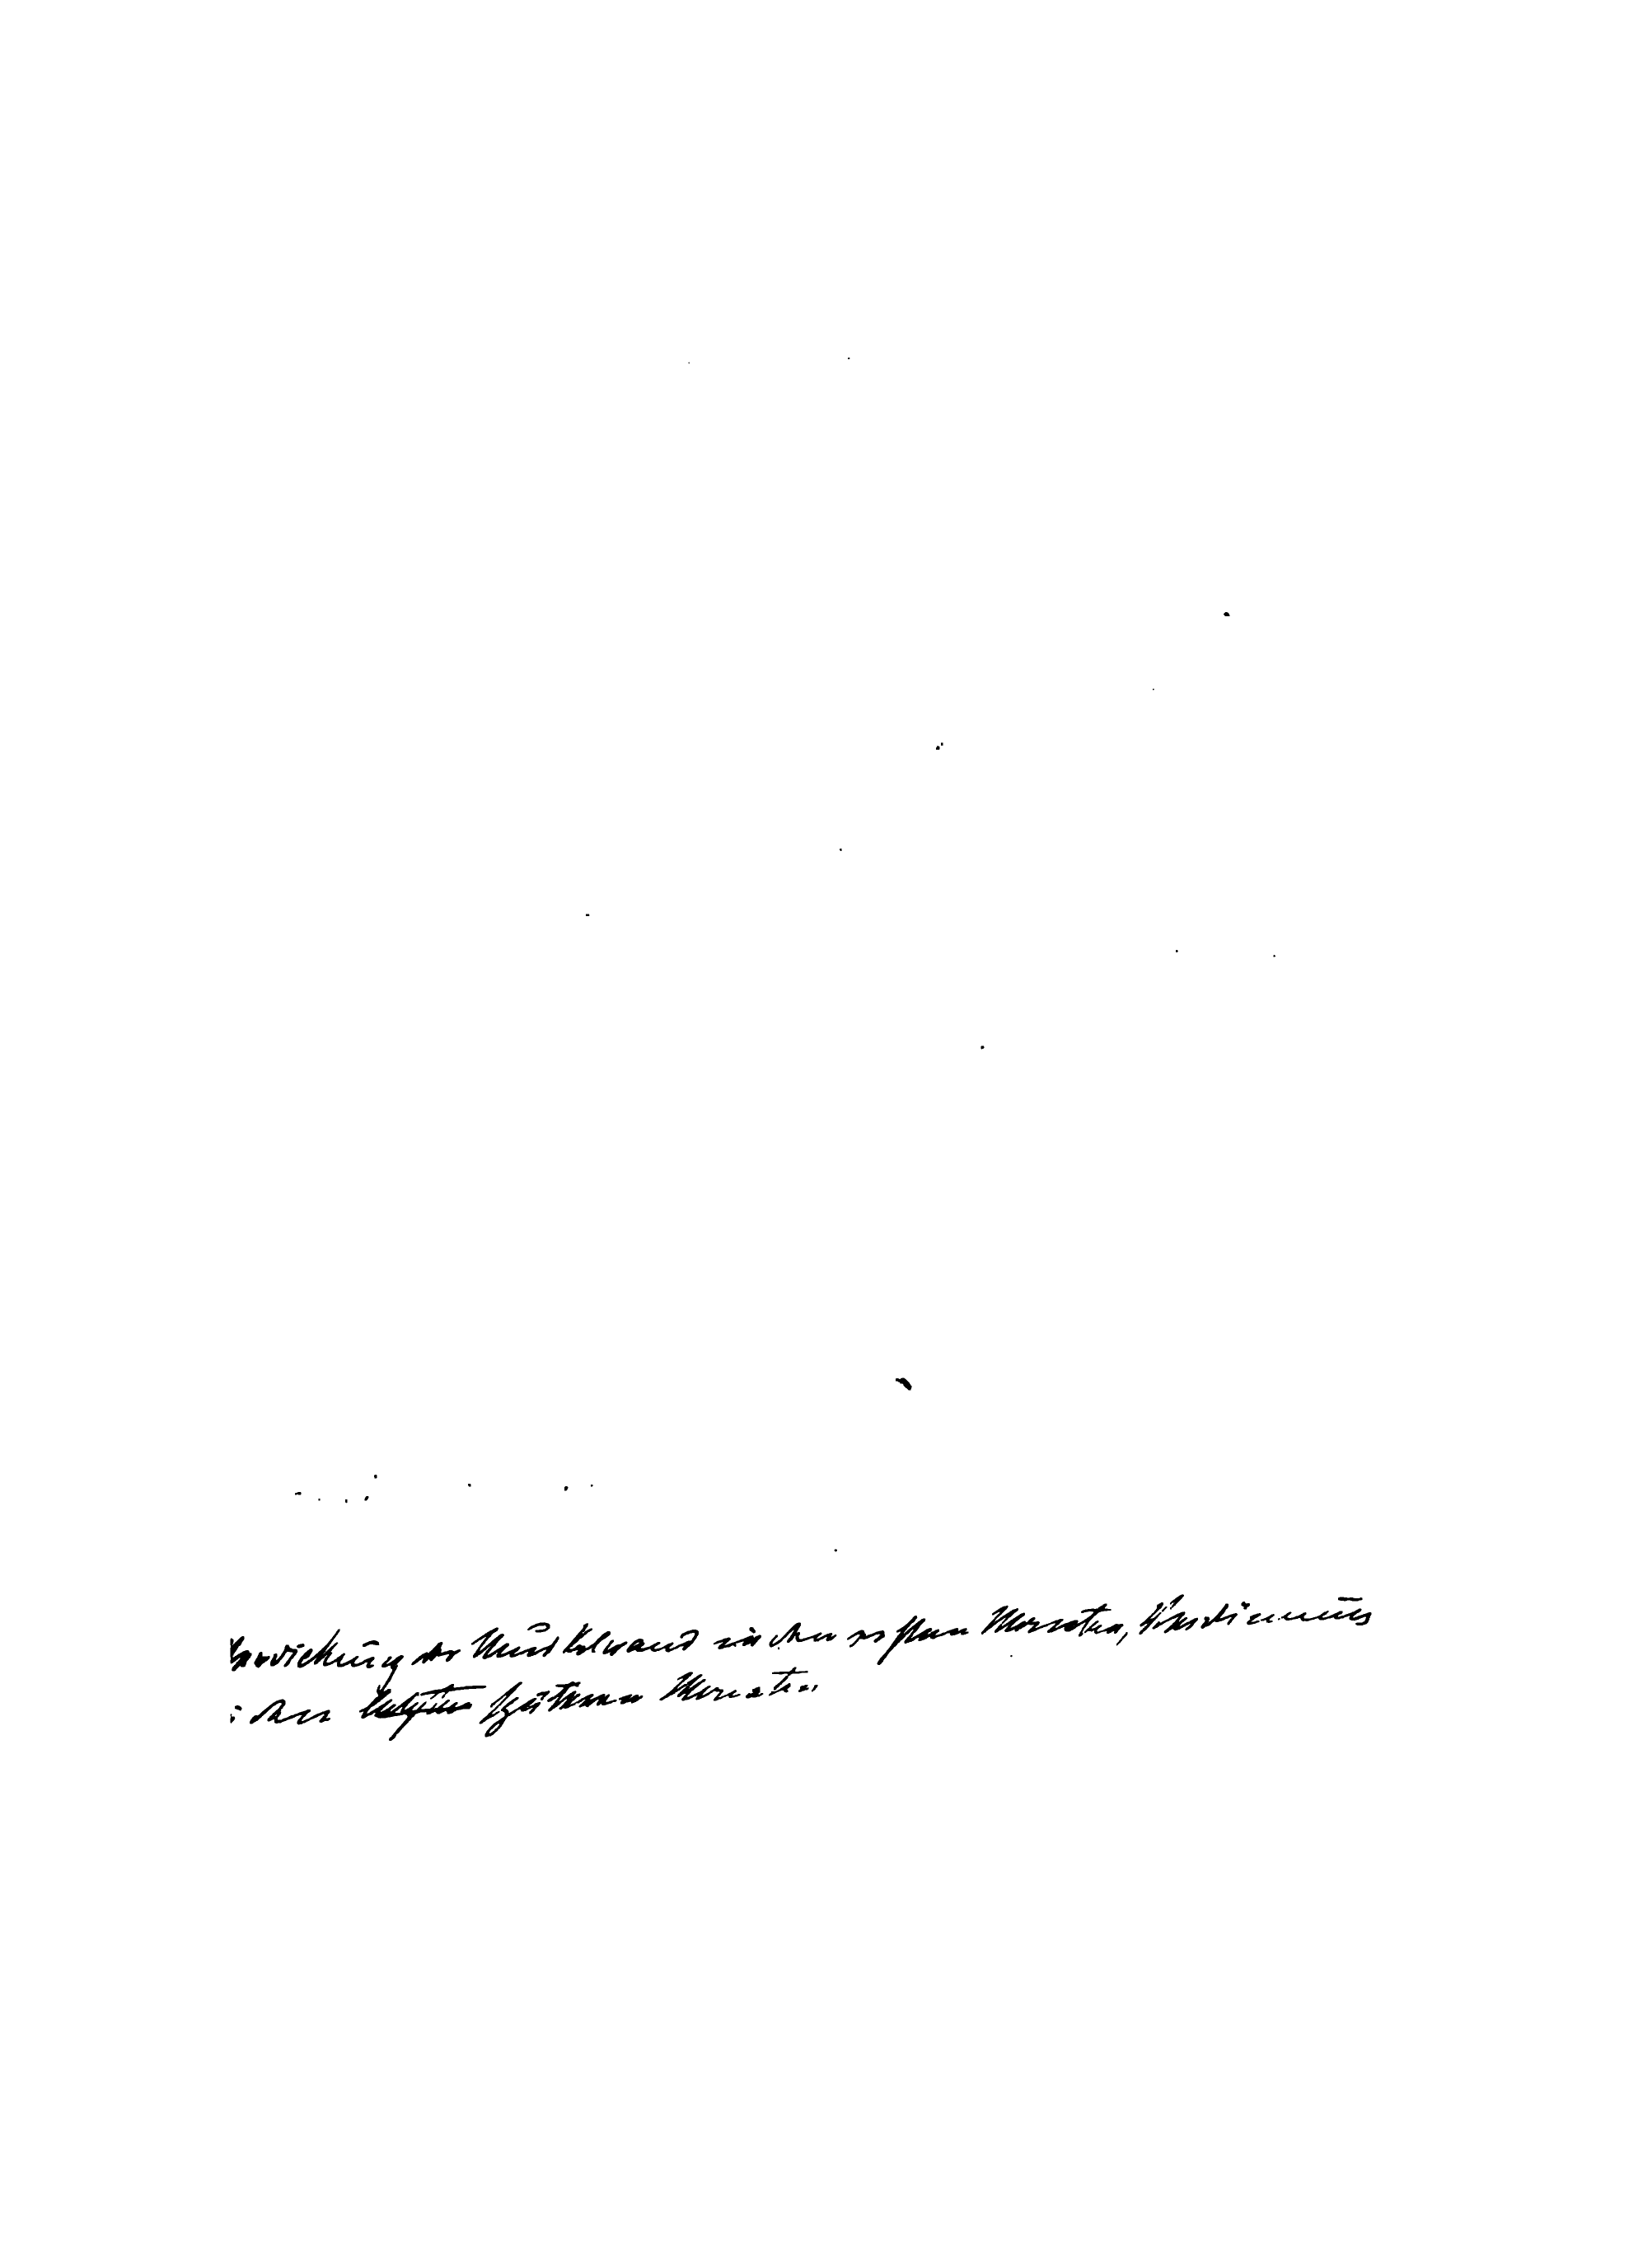 Verdickung der Muskelwand in den ersten Monaten, Verdünnung
i den späteren Monaten